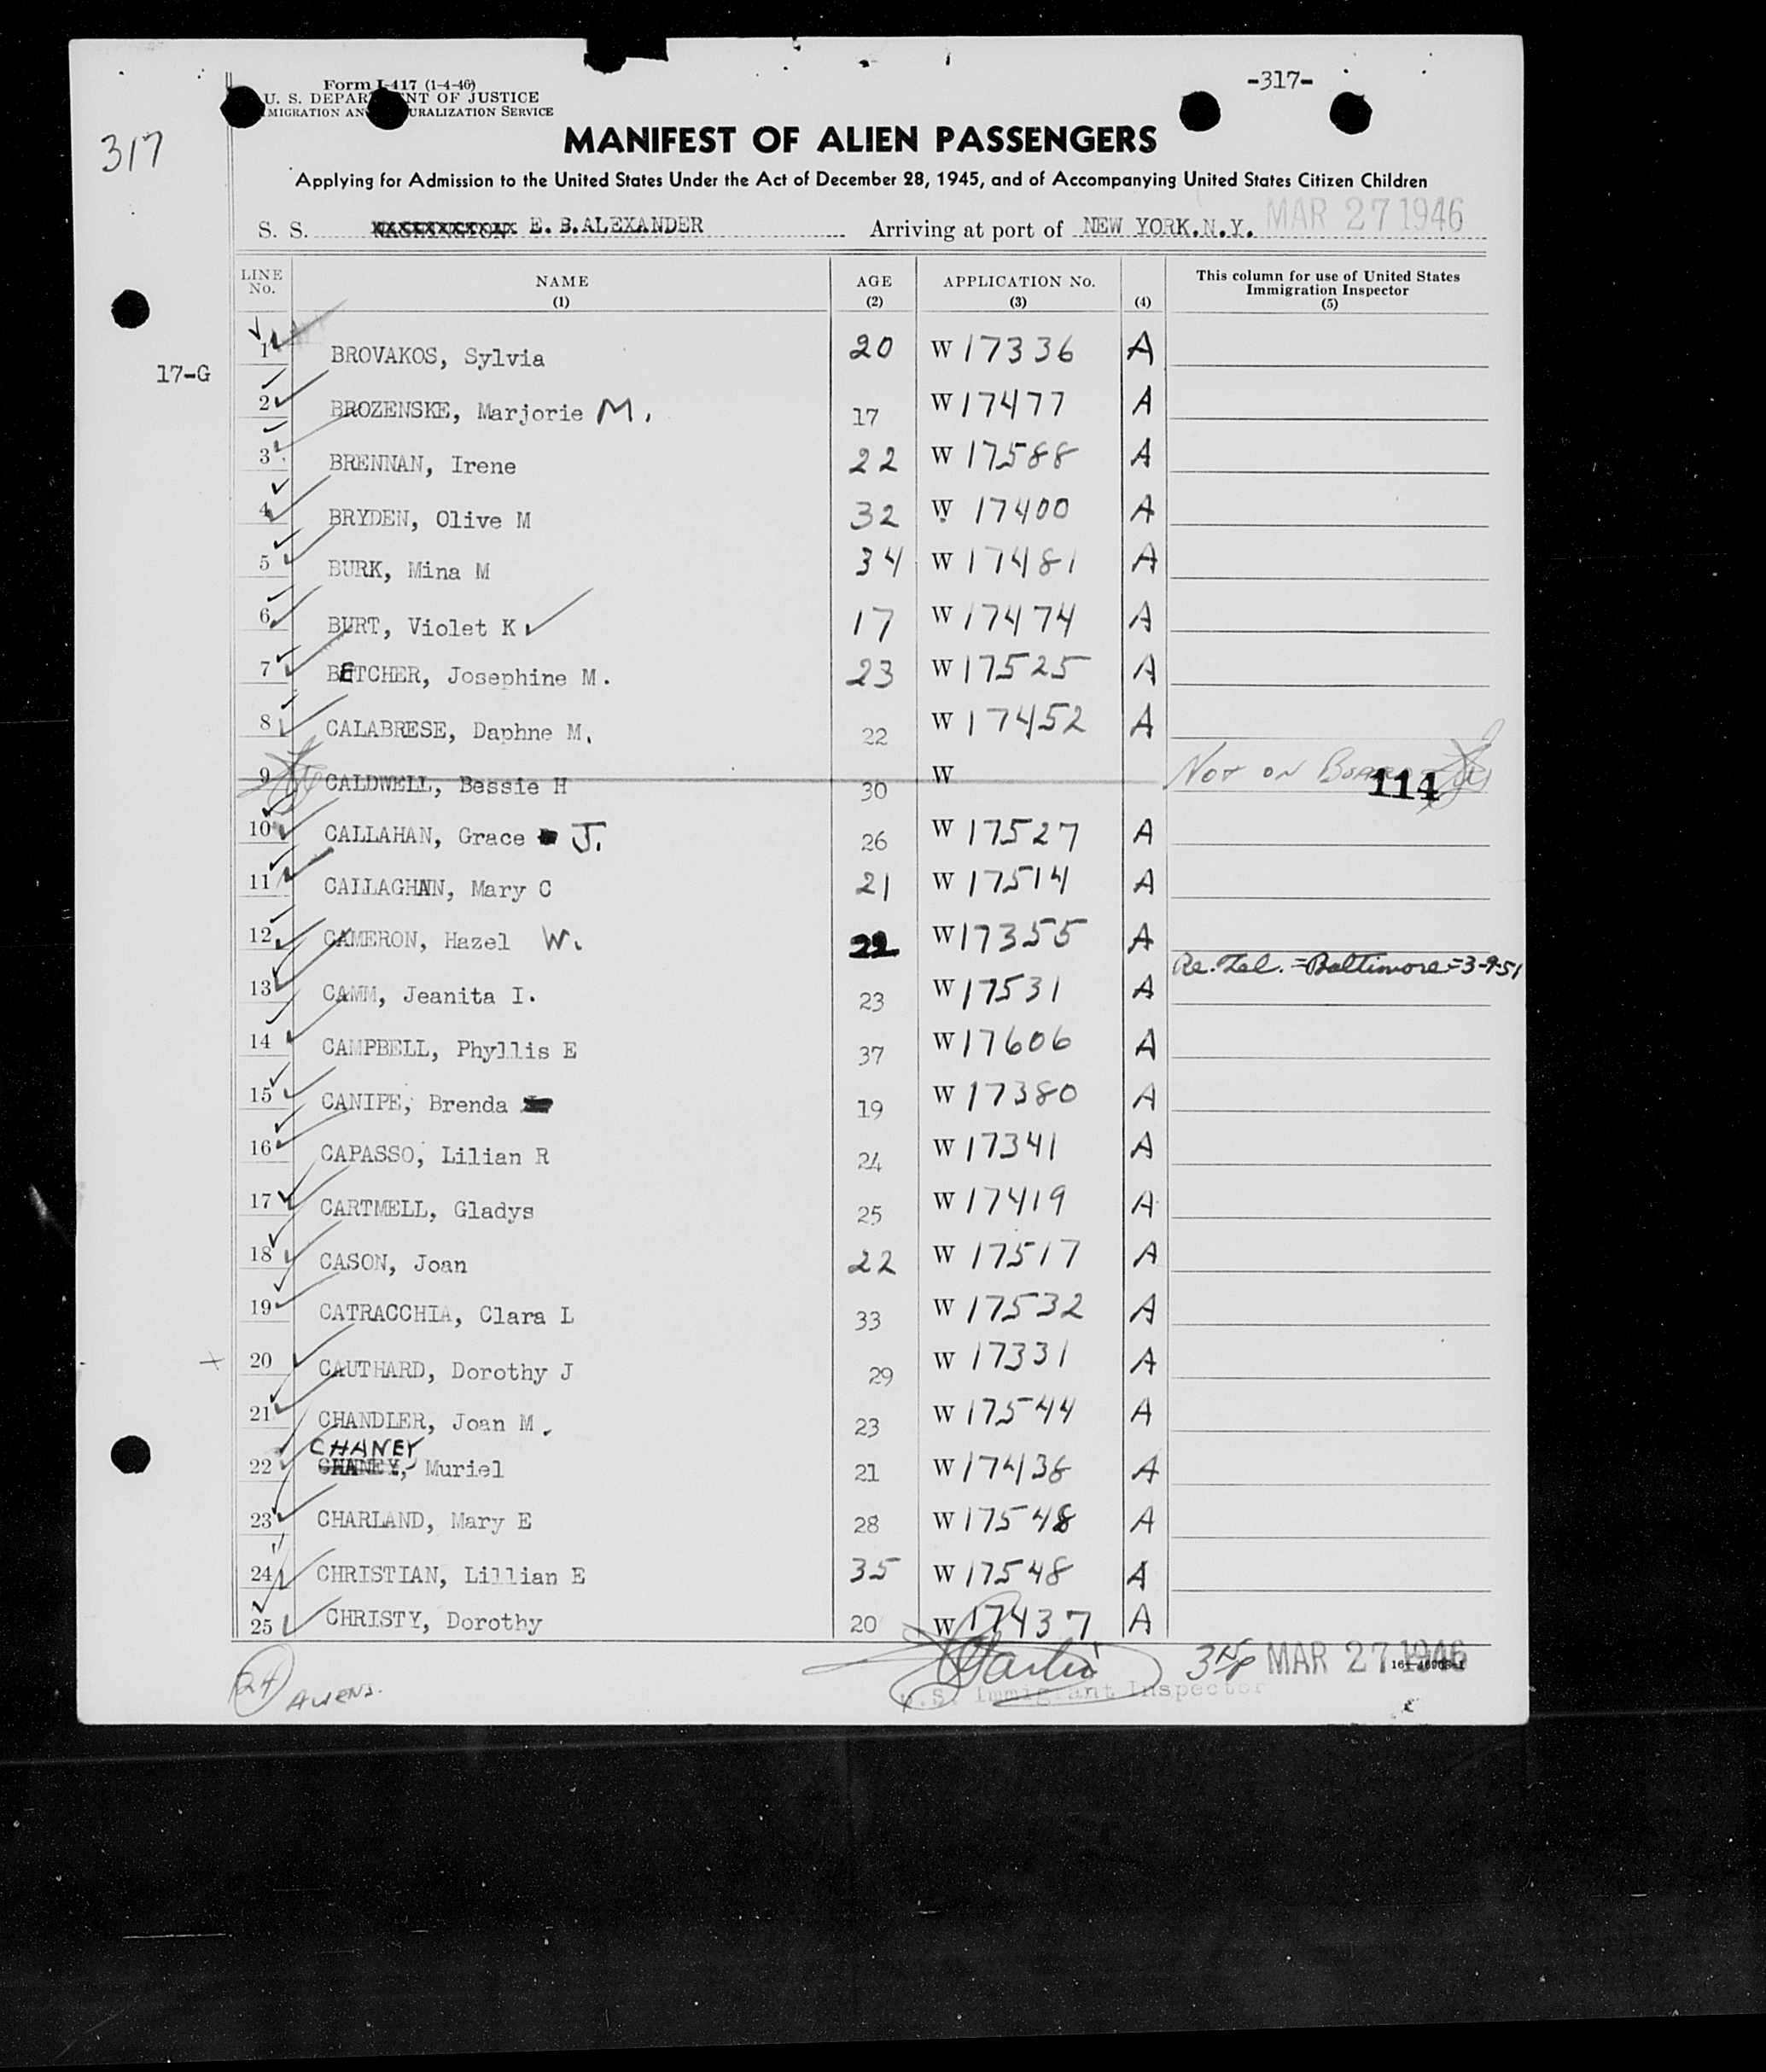 Form I-417 (1-4-46)
-317-
U. S. DEPARTMENT OF JUSTICE
IMMIGRATION AND NATURALIZATION SERVICE
317
MANIFEST OF ALIEN PASSENGERS
Applying for Admission to the United States Under the Act of December 28, 1945, and of Accompanying United States Citizen Children
S. S. WASHINGTON E. B. ALEXANDER Arriving at port of NEW YORK.N.Y. MAR 27 1946
LINE No. NAME (1) AGE (2) APPLICATION No. (3) (4) This column for use of United States Immigration Inspector (5)
1 BROVAKOS, Sylvia 20 W 17336 A
17-G
2 BROZENSKE, Marjorie M. 17 W 17477 A
3 BRENNAN, Irene 22 W 17588 A
4 BRYDEN, Olive M 32 W 17400 A
5 BURK, Mina M 34 W 17481 A
6 BURT, Violet K 17 W 17474 A
7 BETCHER, Josephine M. 23 W 17525 A
8 CALABRESE, Daphne M. 22 W 17452 A
9 CALDWELL, Bessie H 30 W NOT ON BOARD 114
10 CALLAHAN, Grace J. 26 W 17527 A
11 CALLAGHAN, Mary C 21 W 17514 A
12 CAMERON, Hazel W. 22 W 17355 A
Re. Tel. = Baltimore = 3-9-51
13 CAMM, Jeanita I. 23 W 17531 A
14 CAMPBELL, Phyllis E 37 W 17606 A
15 CANIPE, Brenda 19 W 17380 A
16 CAPASSO, Lilian R 24 W 17341 A
17 CARTMELL, Gladys 25 W 17419 A
18 CASON, Joan 22 W 17517 A
19 CATRACCHIA, Clara L 33 W 17532 A
20 CAUTHARD, Dorothy J 29 W 17331 A
21 CHANDLER, Joan M. 23 W 17544 A
CHANEY
22 CHANEY, Muriel 21 W 17438 A
23 CHARLAND, Mary E 28 W 17548 A
24 CHRISTIAN, Lillian E 35 W 17548 A
25 CHRISTY, Dorothy 20 W 17437 A
24 ALIENS.
MAR 27 1946
U.S. Immigrant Inspector